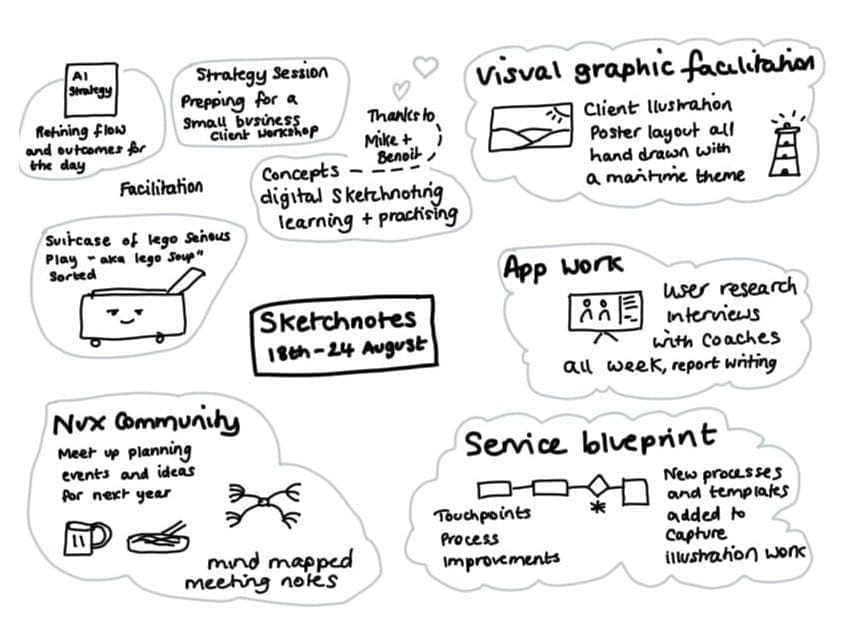 AI
Strategy
Refining flow
and outcomes for
the day
Strategy Session
Prepping for a
Small business
Client workshop
Thanks to
Mike +
Benoit
Concepts
digital Sketchnoting
learning + practising
Facilitation
Visual graphic facilitation
Client Illustration
Poster layout all
hand drawn with
a maritime theme
Suitcase of lego Serious
Play - aka lego Soup"
Sorted
Sketchnotes
18th - 24 August
App work
User research
Interviews
with Coaches
all week, report writing
Nux Community
Meet up planning
events and ideas
for next year
mind mapped
meeting notes
Service blueprint
Touchpoints
Process
Improvements
New processes
and templates
added to
Capture
illustration work